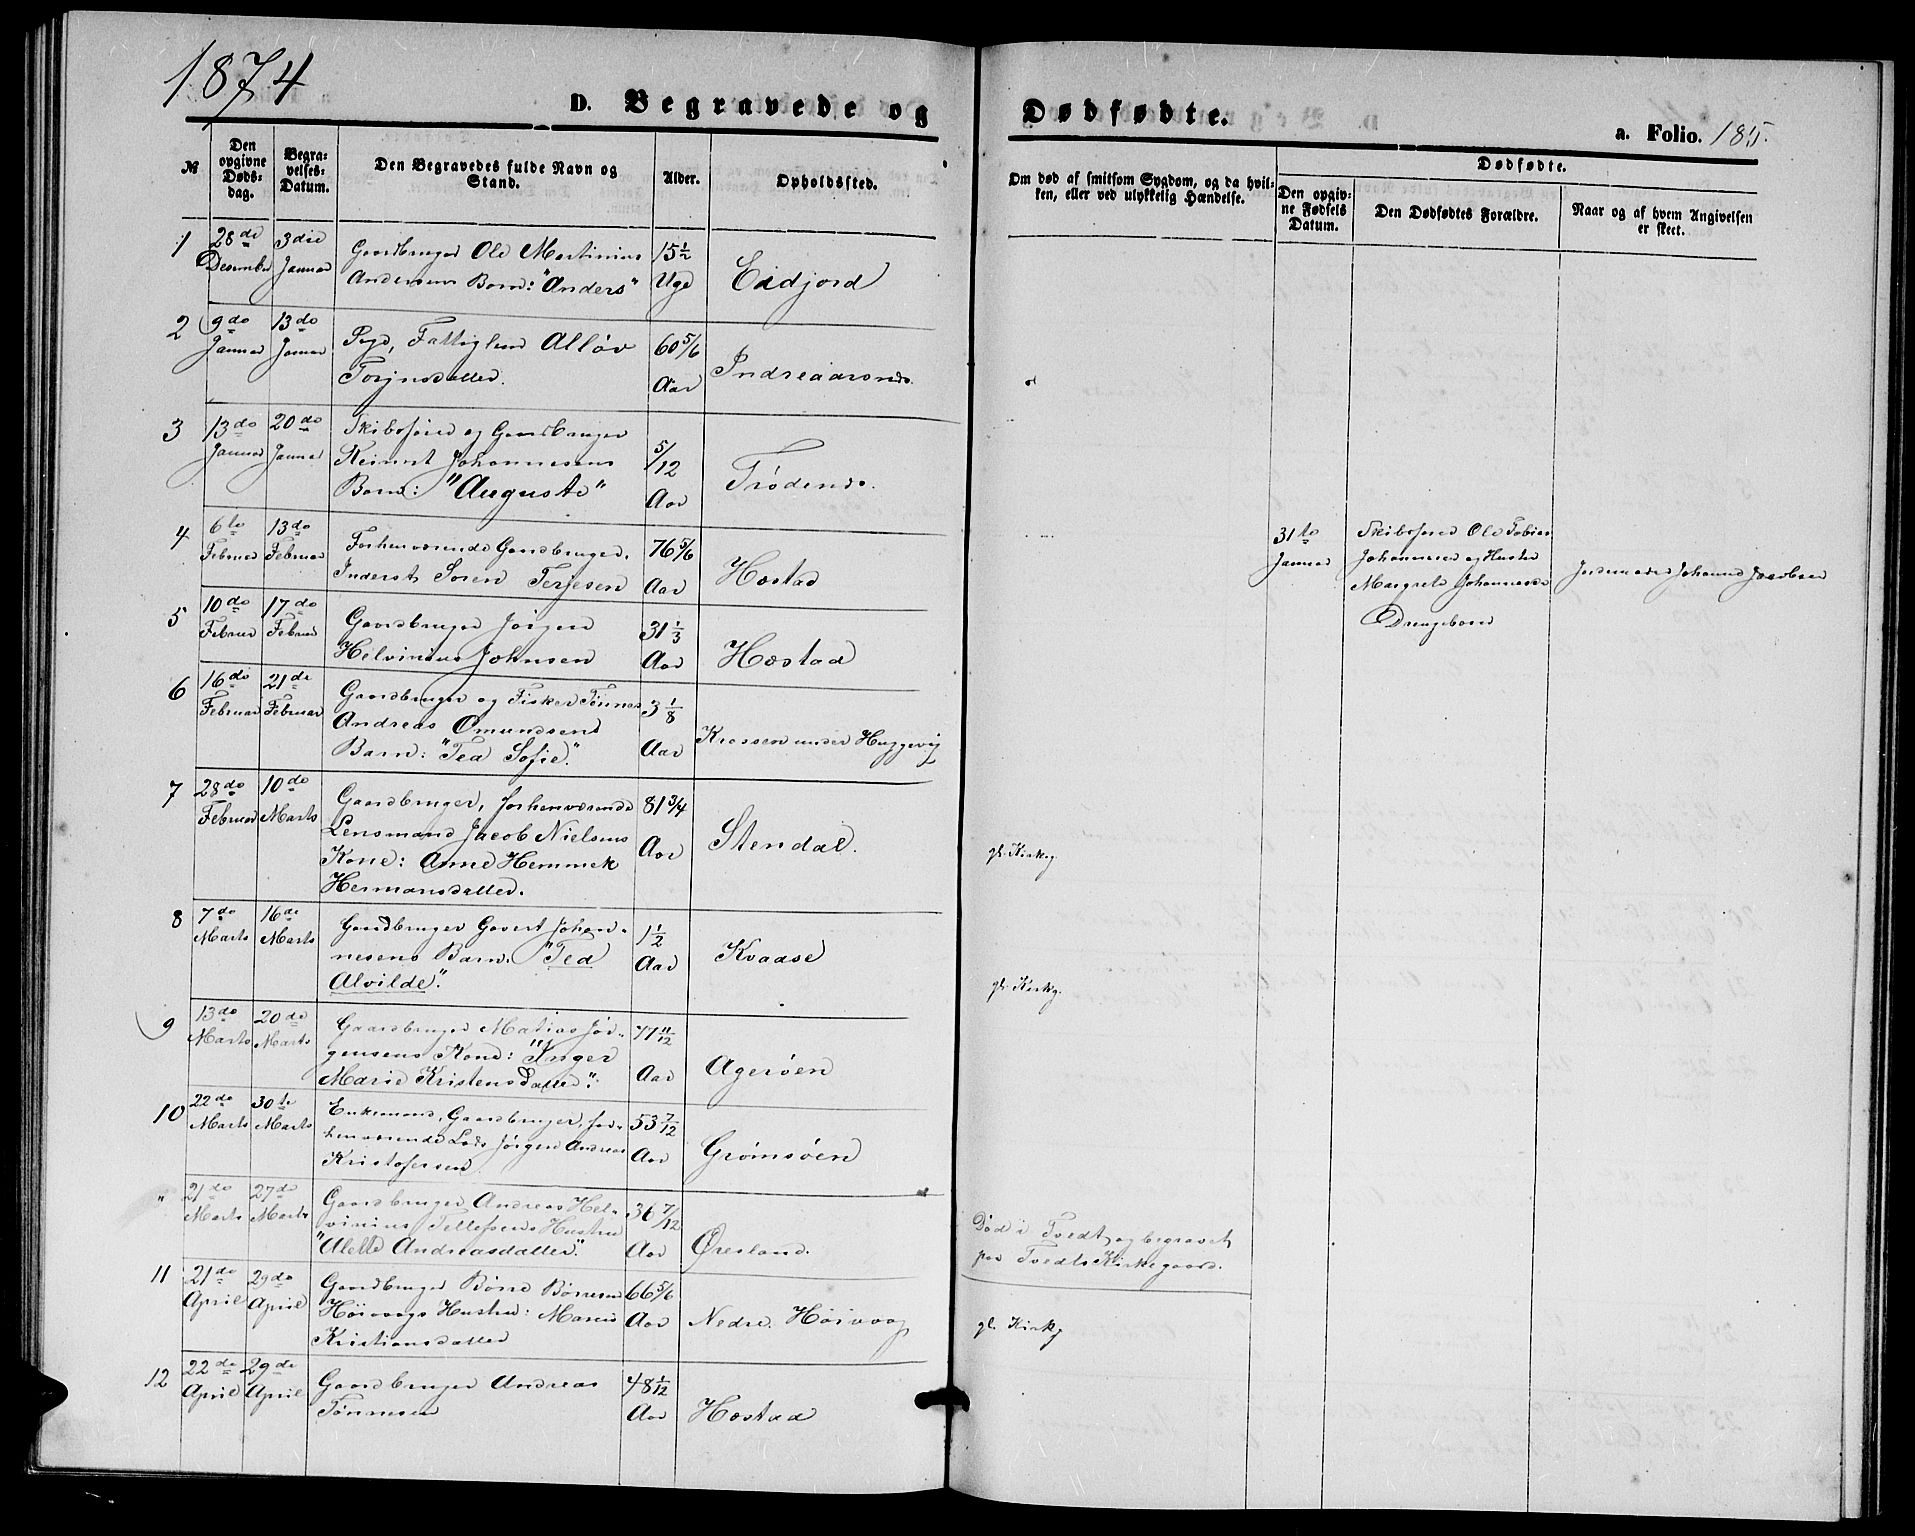 1874
D. Begravede og
Dødfødte.
a. Folio. 185.
№
Den opgivne Døds-dag.
Begra-velses-Datum.
Den Begravedes fulde Navn og Stand.
Alder.
Opholdssted.
Om død af smitsom Sygdom, og da hvil-
ken, eller ved ulykkelig Hændelse.
Dødfødte.
Den opgiv-
ne Fødsels
Datum.
Den Dødfødtes Forældre.
Naar og af hvem Angivelsen
er skeet.
1 28de 3die Gaardbruger Ole Martinius 15 1/2
Desember Januar Andersens Barn: "Anders" Uge Eidjord
2 9de 13de Fattiglem Alløv 60 5/6
Januar Januar Aar Indreaarsnes.
3 13de 20de Skibsfører og Gaardbruger
Januar Januar Reinert Johannesens 5/12
Barn: "Auguste" Aar Trødenes.
4 6te 13de Forhenværende Gaardbruger, 76 5/6
Februar Februar Inderst Soren Terjesen Aar Hæstad
31te Skibsfører Ole Tobias
Januar Johannesen og Hustru
Margrete Johannesdr. Jordemoder Johanne Jacobsen
Drengebarn
5 10de 17de Gaardbruger Jørgen 31 1/3
Februar Februar Helvinius Johnsen Aar Hæstad
6 16de 21de Gaardbruger og Fisker Tønnes 3 1/8
Februar Februar Andreas Omundsens
Barn: "Tea Sofie." Aar Krossen under Huggevig
7 28de 10de Gaardbruger, forhenværende 81 3/4
Februar Marts Lensmand Jacob Nielsens
Kone: Anne Hemmek Aar Stendal. gl. Kirkg.
Hermansdatter.
8 7de 16de Gaardbruger Govert Johan- 1 1/2
Marts Marts nesens Barn: "Tea Aar Kvaase
Alvilde". gl. Kirkg.
9 13de 20de Gaardbruger Matias Jør- 77 11/12
Marts Marts gensens Kone: "Inger
Marie Kristensdatter". Aar Agerøen
10 22de 30te Enkemand, Gaardbruger, for- 53 7/12
Marts Marts henværende Lods Jørgen Andreas Aar Grømsøen
Kristofersen
" 21de 27de Gaardbruger Andreas Hel- 36 7/12
Marts Marts vinius Tellefsens Hustru
"Alette Andreasdatter". Aar Øresland.
Død i Tvedt og begravet
paa Tvedts Kirkegaard.
11 21de 29de Gaardbruger Børre Børresen 66 5/6
April April Høivaags Hustru: Maren Aar Nedre Høivaag gl. Kirkg
Kristiansdatter
12 22de 29de Gaardbruger Andreas 48 1/12
April April Tønnesen Aar Hæstad